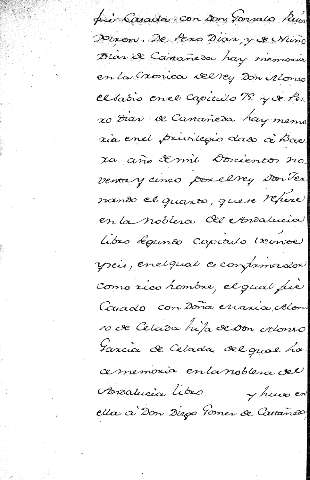 fue Casada con Don Gonzalo Ruiz
Giron. De Pero Diaz, y de Nuño
Diaz de Castañeda hay memoria
en la Cronica del rey Don Alonso
el Sabio en el Capitulo 78 y de Pe-
ro Diaz de Castañeda hay memo
ria en el privilegio dado à Bae
za año de mil Doscientos no
venta y cinco por el rey Don Fer
nando el quarto, que se refiere
en la nobleza del Andalucia
libro segundo Capitulo veinte
y seis, en el qual es confirmador
como rico hombre, el qual fue
Casado con Doña Maria Alon
so de Celada hija de Don Alonso
Garcia de Celada del qual ha
ce memoria en la nobleza del
Andalucia libro y huvo en
ella à Don Diego Gomez de Castañeda